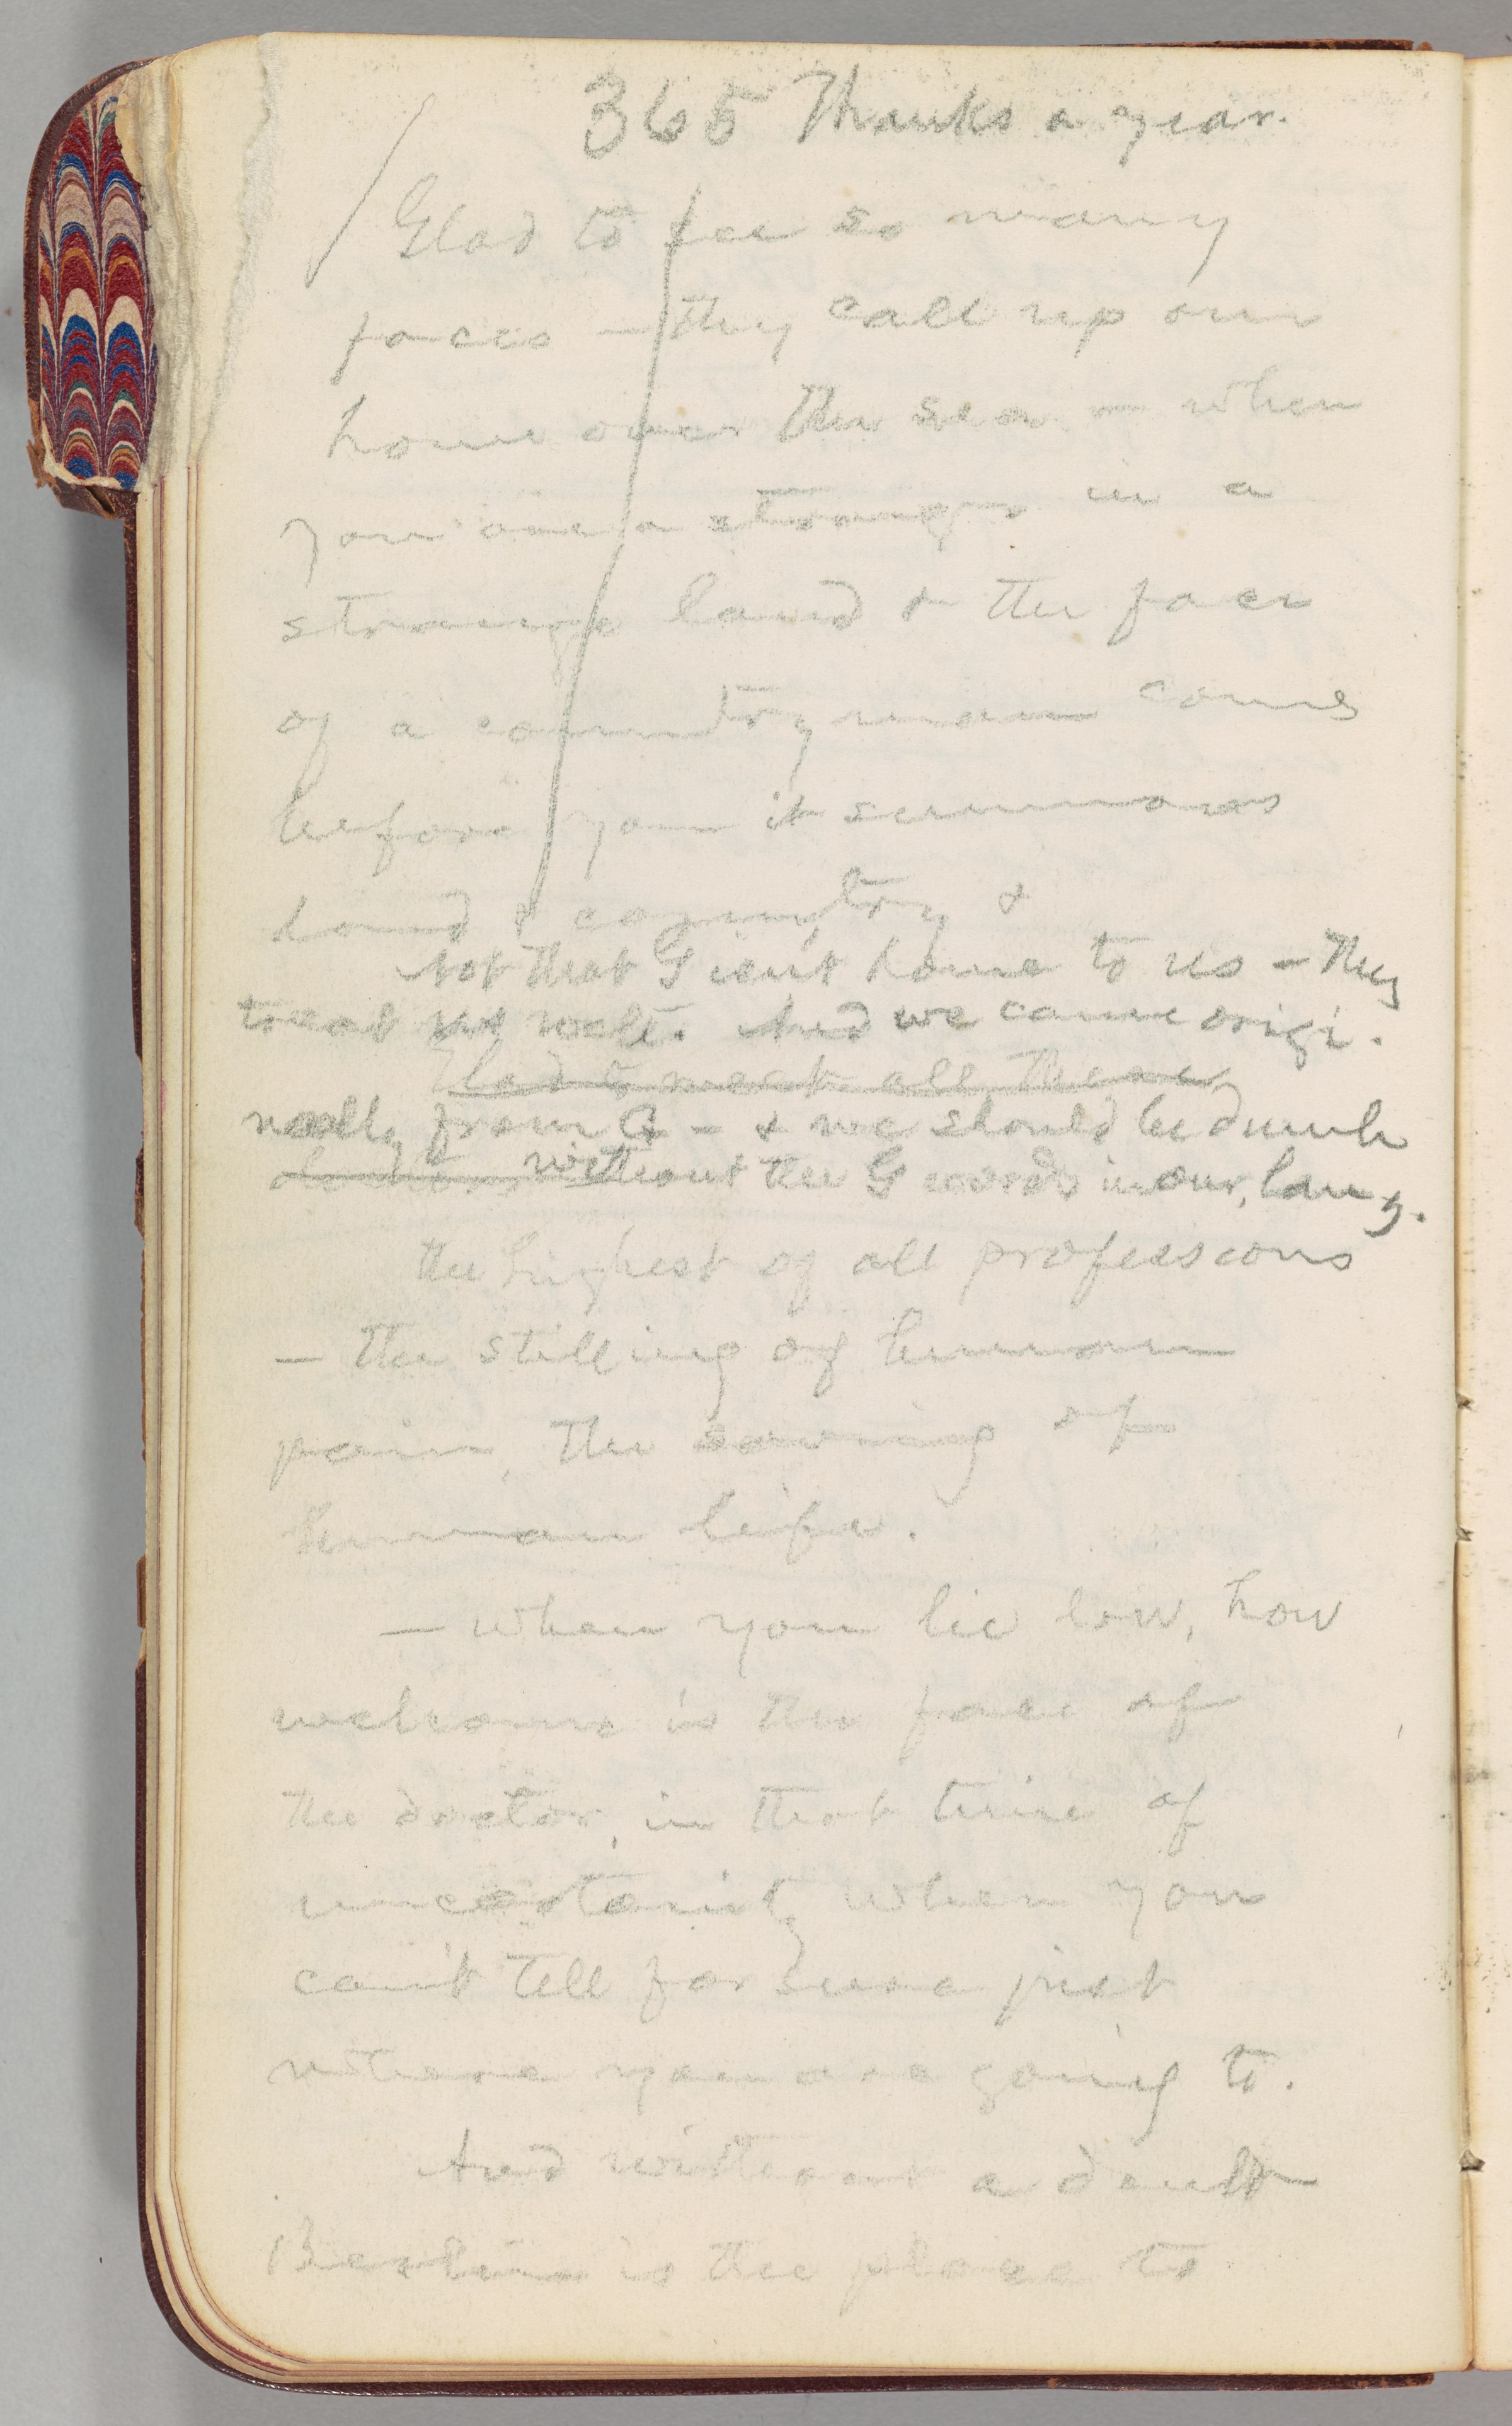 365 Thanks a year.
Glad to see so many
faces — they call up our
home over the sea — when
you are a stranger in a
strange land & the face
of a countryman comes
before you it summons
home & country &
Not that G isn't home to us — they
treat us well. And we came origi-
Glad to meet all these
nally from G — & we should be dumb
doctors without the G words in our lang.
the highest of all professions
— the stilling of human
pain, the saving of
human life.
— when you lie low, how
welcome is the face of
the doctor, in that time of
uncertainty when you
can't tell for sure just
where you are going to.
And without a doubt
Berlin is the place to